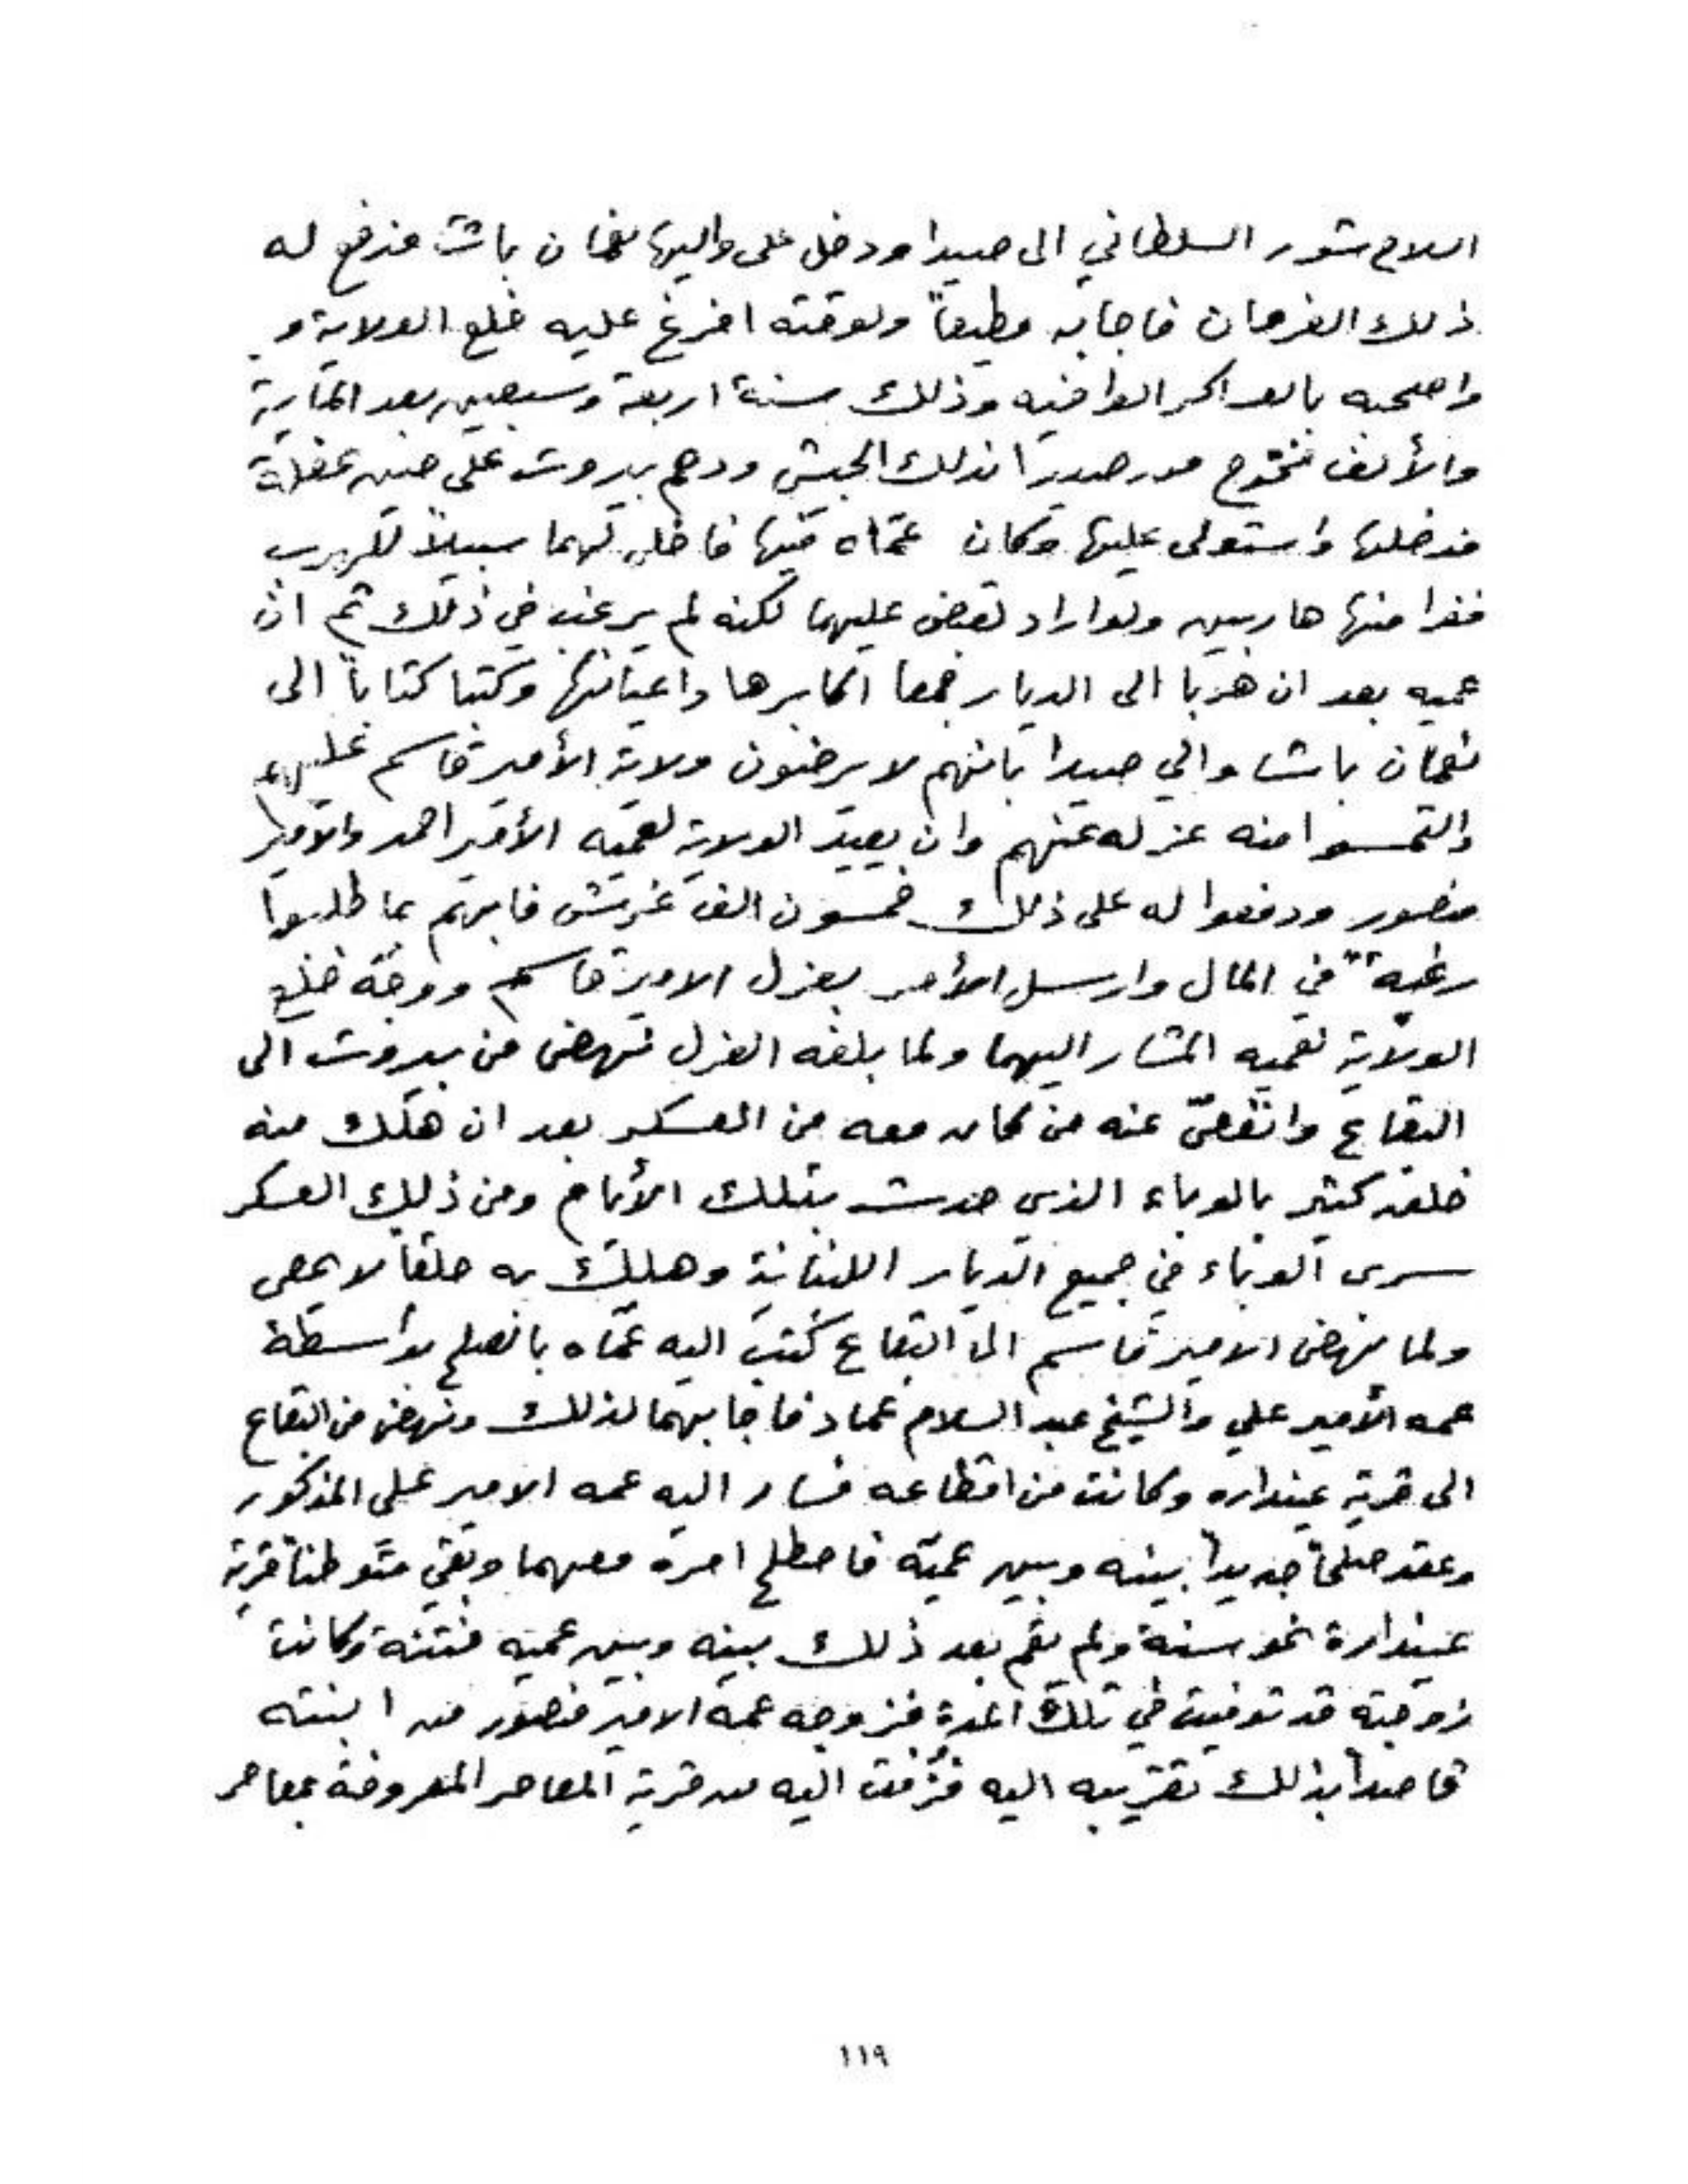 السلاح شور السلطاني الى صيدا ودخل على واليها نعمان باشا فدفع له
ذلك الفرمان فاجابه مطيعاً ولوقته افرغ عليه خلع الولاية و
واصحبه بالعساكر الوافيه وذلك سنة اربعة وسبعين بعد المأية
والألف فخرج من صيدا بذلك الجيش ودهم بيروت على حين غفلة
فدخلها واستولى عليها وكان عمّاه فيها فاخلى لهما سبيلاً للهرب
ففرا منها هاربين ولو اراد لقبض عليهما لكنه لم يرغب في ذلك ثم ان
عميه بعد ان هربا الى الديار جمعا اكابرها واعيانها وكتبا كتاباً الى
نعمان باشا والي صيدا بانهم لا يرضون ولاية الأمير قاسم عليهم
والتمسوا منه عزله عنهم وان يعيد الولاية لعميه الأمير احمد والأمير
منصور ودفعوا له على ذلك خمسون الف غرش فاجابهم بما طلبوا
رغبةً في المال وارسل الأمر بعزل الامير قاسم ووجّه خلع
الولاية لعميه المشار اليهما ولما بلغه العزل نهض من بيروت الى
البقاع وانفضّ عنه من كان معه من العسكر بعد ان هلك منه
خلق كثير بالوباء الذي حدث بتلك الأيام ومن ذلك العسكر
سرى الوباء في جميع الديار اللبنانية وهلك به خلقاً لا يحصى
ولما نهض الامير قاسم الى البقاع كتب اليه عمّاه بالصلح بواسطة
عمه الأمير علي والشيخ عبد السلام عماد فاجابهما لذلك ونهض من البقاع
الى قرية عينداره وكانت من اقطاعه فسار اليه عمه الامير علي المذكور
وعقد صلحاً جديداً بينه وبين عميّه فاصطلح امره معهما وبقي متوطناً قرية
عيندارة نحو سنة ولم يقم بعد ذلك بينه وبين عميه فتنة وكانت
زوجته قد توفيت في تلك المدة فزوجه عمه الامير منصور من ابنته
قاصداً بذلك تقريبه اليه فزُفت اليه من قرية المعاصر المعروفة بمعاصر
١١٩